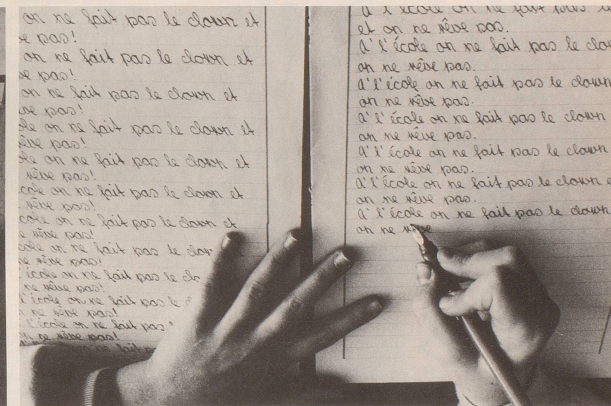 on ne fait pas le clown et
pas!
on ne fait pas le clown et
pas!
on ne fait pas le clown et
pas!
on ne fait pas le clown et
rêve pas!
on ne fait pas le clown et
rêve pas!
école on ne fait pas le clown et
rêve pas!
école on ne fait pas le clown et
rêve pas!
école on ne fait pas le clow
ne rêve pas!
école on ne fait pas le clo
ne rêve pas!
l'école on ne fait pas le c
ne rêve pas!
l'école on ne fait pas
ne rêve pas!
on ne fait p
à l'école on ne fait pas l
et on ne rêve pas.
A l'école on ne fait pas le clow
on ne rêve pas.
A l'école on ne fait pas le clown
on ne rêve pas.
A l'école on ne fait pas le clown
on ne rêve pas.
A l'école on ne fait pas le clown
on ne rêve pas.
A l'école on ne fait pas le clown e
on ne rêve pas.
A l'école on ne fait pas le clown
on ne rêve